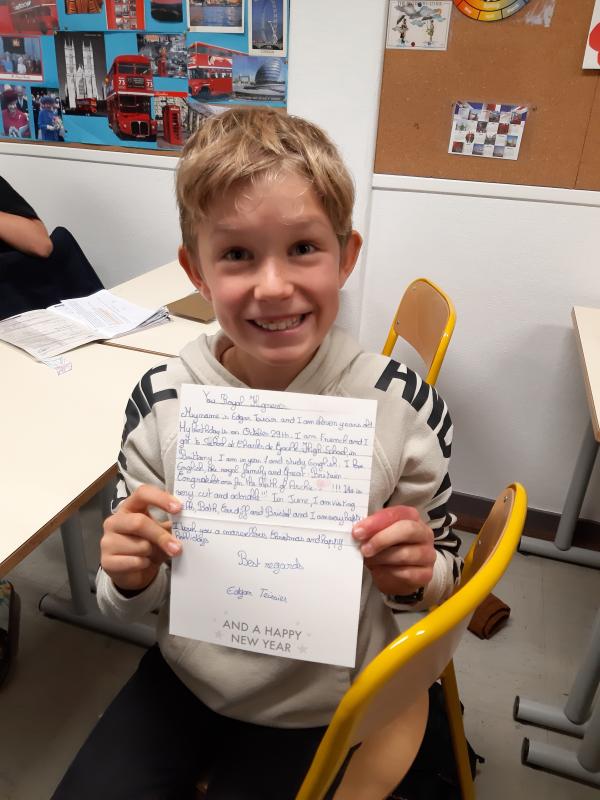 You Royal Higness
My name is Edgar and I am eleven years old.
My birthday is on October 29th. I am French and I
go to School at Charles de Gaulle High School, in
Brittany. I am in year 1 and study English. I love
English, the royal family and Great Britain.
Congratulations for the birth of Archie !!! He is
very cut and adorable!!! In June, I am visiting
Bath, Cardiff and Bristol and I am very happy.
I wish you a marvellous Christmas and happy
holidays.
Best regards
Edgar
AND A HAPPY
NEW YEAR